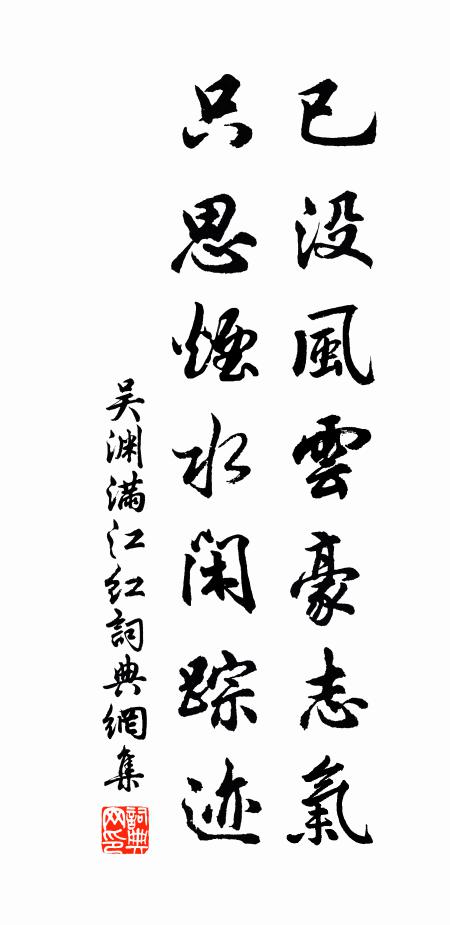 已没風雲豪志氣
只思煙水闲踪迹
吴渊满江红詞典網集
詞典网印